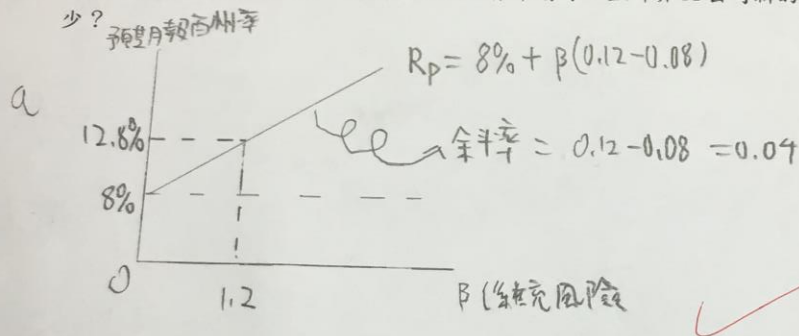 少？
預期報酬率
a
Rp = 8% + β(0.12-0.08)
12.8%
斜率 = 0.12-0.08 = 0.04
8%
0
1.2
β (系統風險